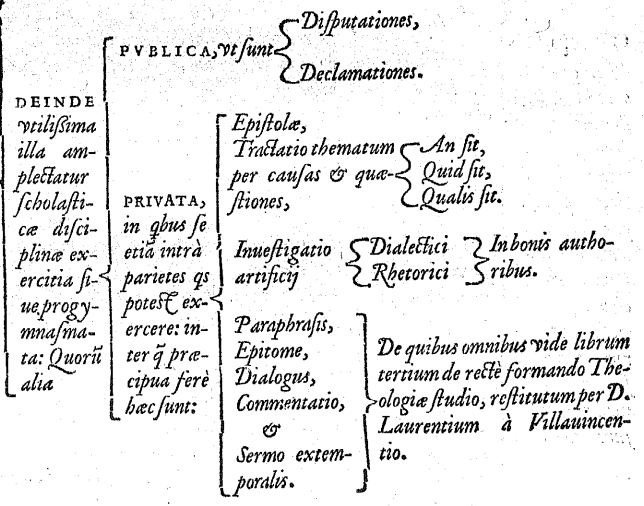 DEINDE
vtilißima
illa am-
plectatur
ſcholaſti-
cæ diſci-
plinæ ex-
ercitia ſi-
ue progy-
mnaſma-
ta: Quorũ
alia
PVBLICA, vt ſunt
Diſputationes,
Declamationes.
PRIVATA,
in qbus ſe
etiã intrà
parietes qs
poteſt ex-
ercere: in-
ter q̃ præ-
cipua ferè
hæc ſunt:
Epiſtolæ,
Tractatio thematum
per cauſas & quæ-
ſtiones,
An ſit,
Quid ſit,
Qualis ſit.
Inueſtigatio
artificij
Dialectici
Rhetorici
In bonis autho-
ribus.
Paraphraſis,
Epitome,
Dialogus,
Commentatio,
&
Sermo extem-
poralis.
De quibus omnibus vide librum
tertium de rectè formando The-
ologiæ ſtudio, reſtitutum per D.
Laurentium à Villauincen-
tio.